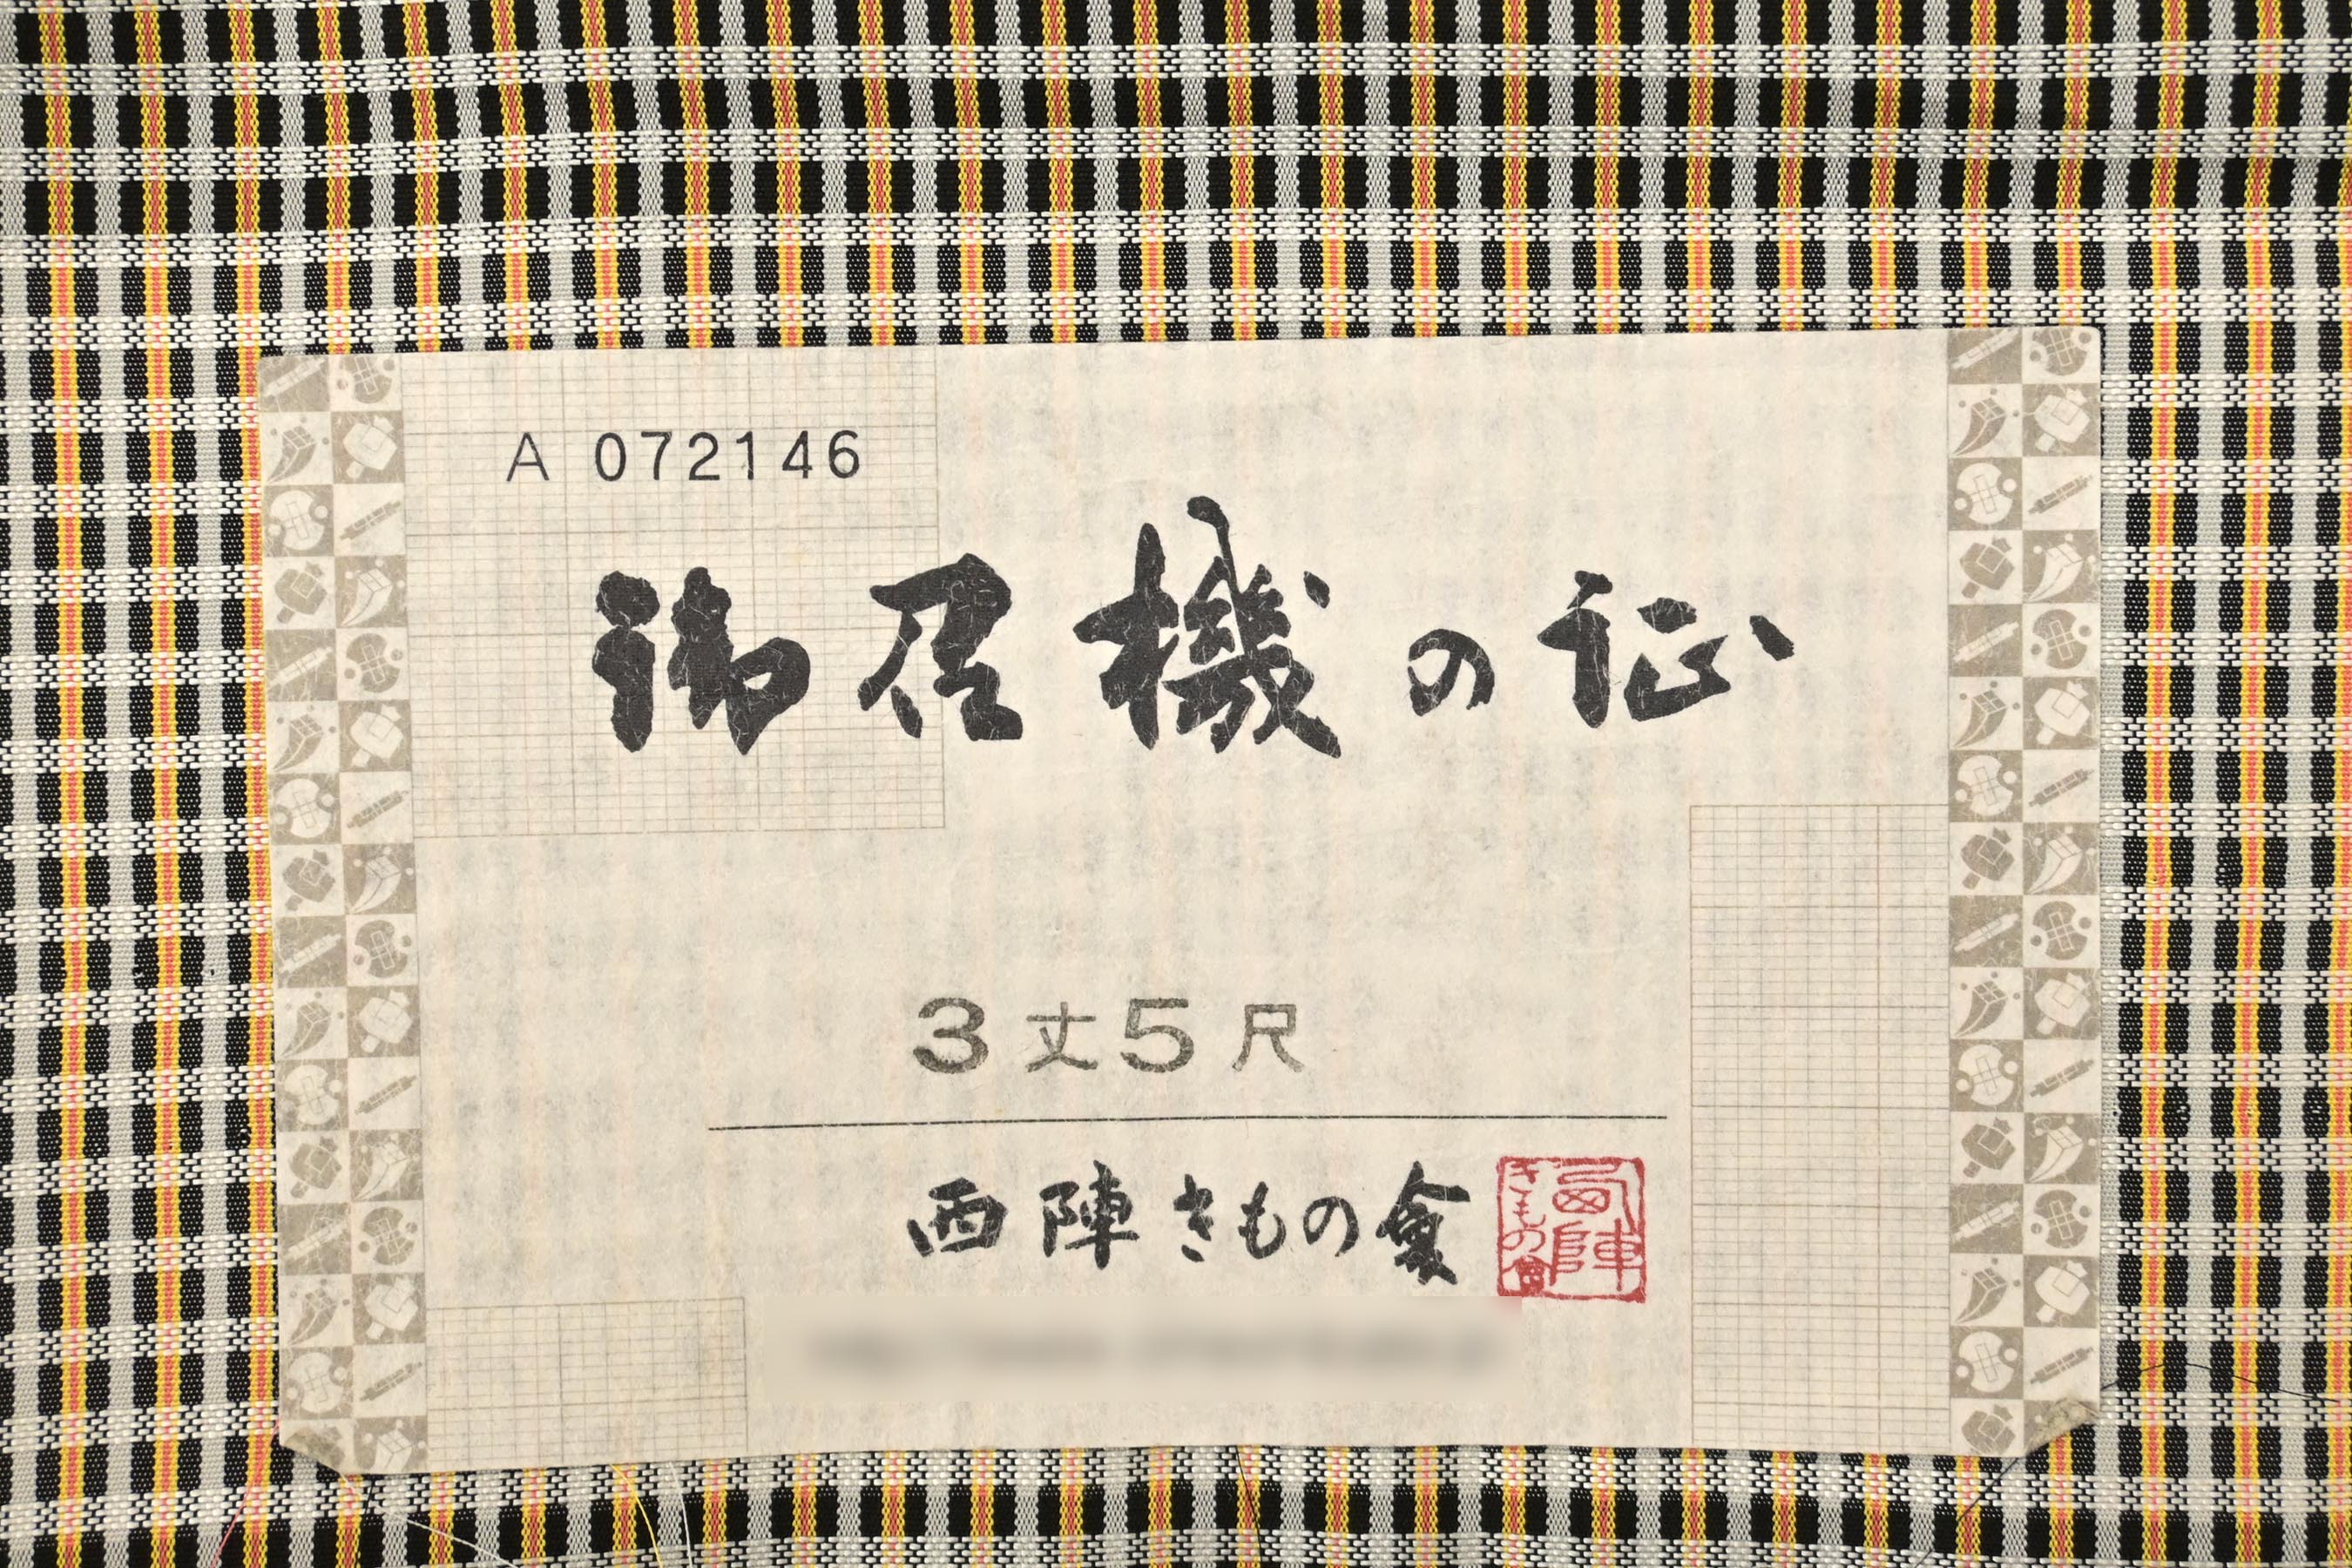 A 072146
御召機の証
3丈5尺
西陣きもの會
西陣
きもの會